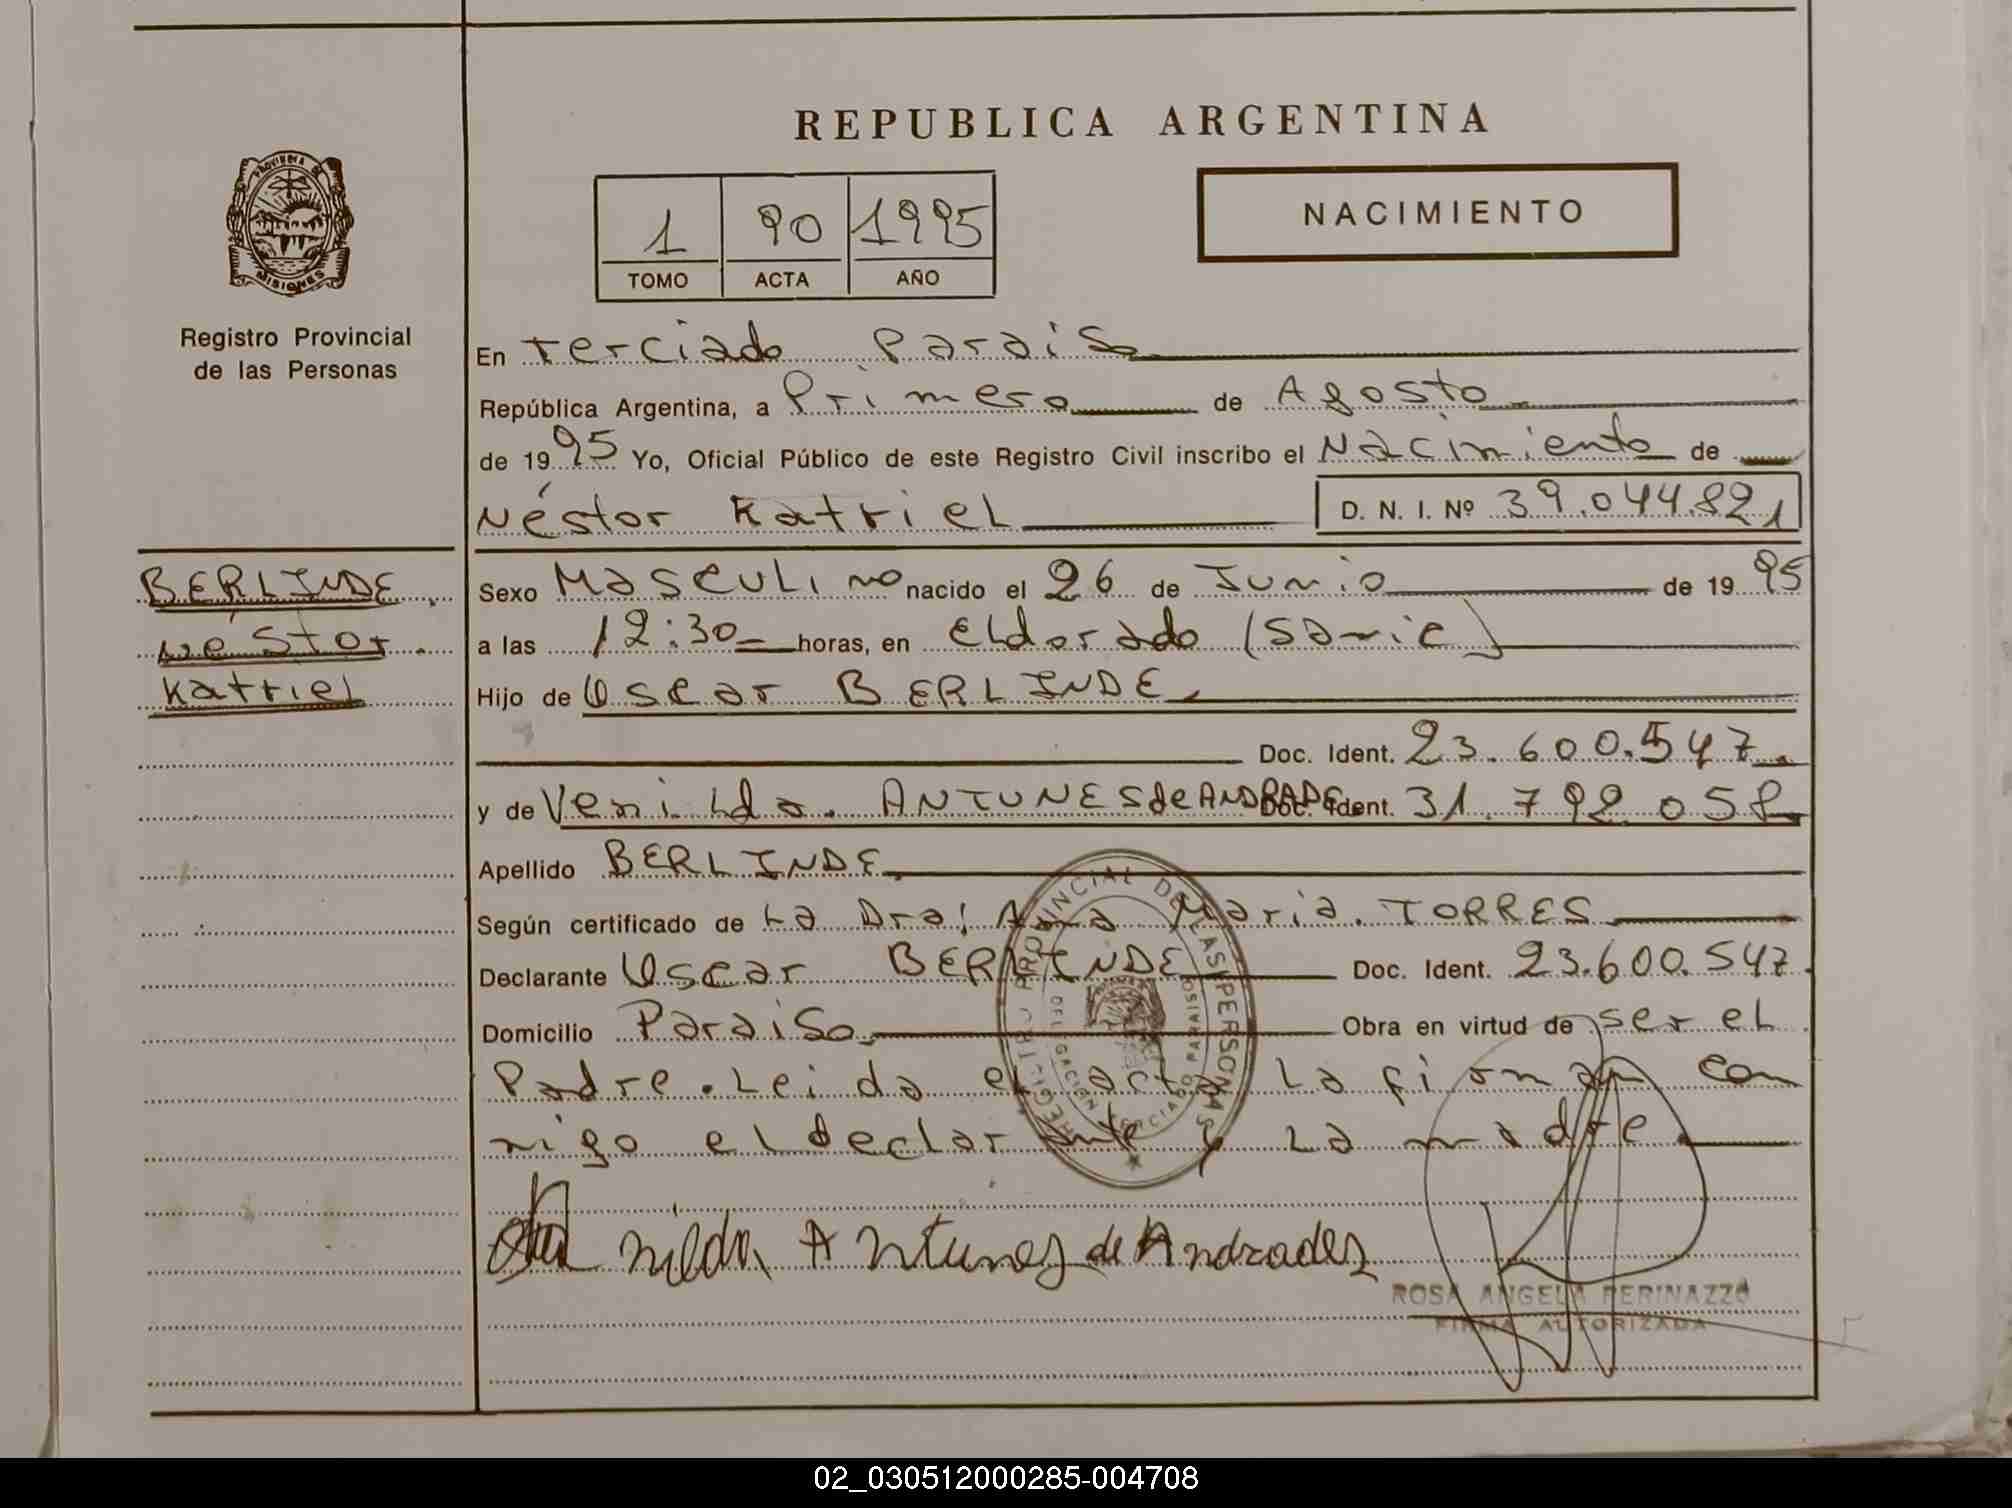 REPUBLICA ARGENTINA
PROVINCIA DE
MISIONES
Registro Provincial
de las Personas
1 90 1995
TOMO ACTA AÑO
NACIMIENTO
En Terciado Paraiso
República Argentina, a Primero de Agosto
de 1995 Yo, Oficial Público de este Registro Civil inscribo el Nacimiento de
Néstor Katriel D. N. I. Nº 39.044.821
BERLINDE
Néstor
Katriel
Sexo Masculino nacido el 26 de Junio de 1995
a las 12:30 horas, en Eldorado (Samic)
Hijo de Oscar BERLINDE
Doc. Ident. 23.600.547
y de Venilda ANTUNES de ANDRADE Doc. Ident. 31.792.058
Apellido BERLINDE
Según certificado de La Dra; Ana Maria TORRES
Declarante Oscar BERLINDE Doc. Ident. 23.600.547
Domicilio Paraiso Obra en virtud de ser el
Padre. Leida el acta La firman con
migo el declarante y La madre
REGISTRO PROVINCIAL DE LAS PERSONAS
DELEGACION TERCIADO PARAISO
nilda Antunes de Andrades
ROSA ANGELA PERINAZZO
FIRMA AUTORIZADA
02_030512000285-004708